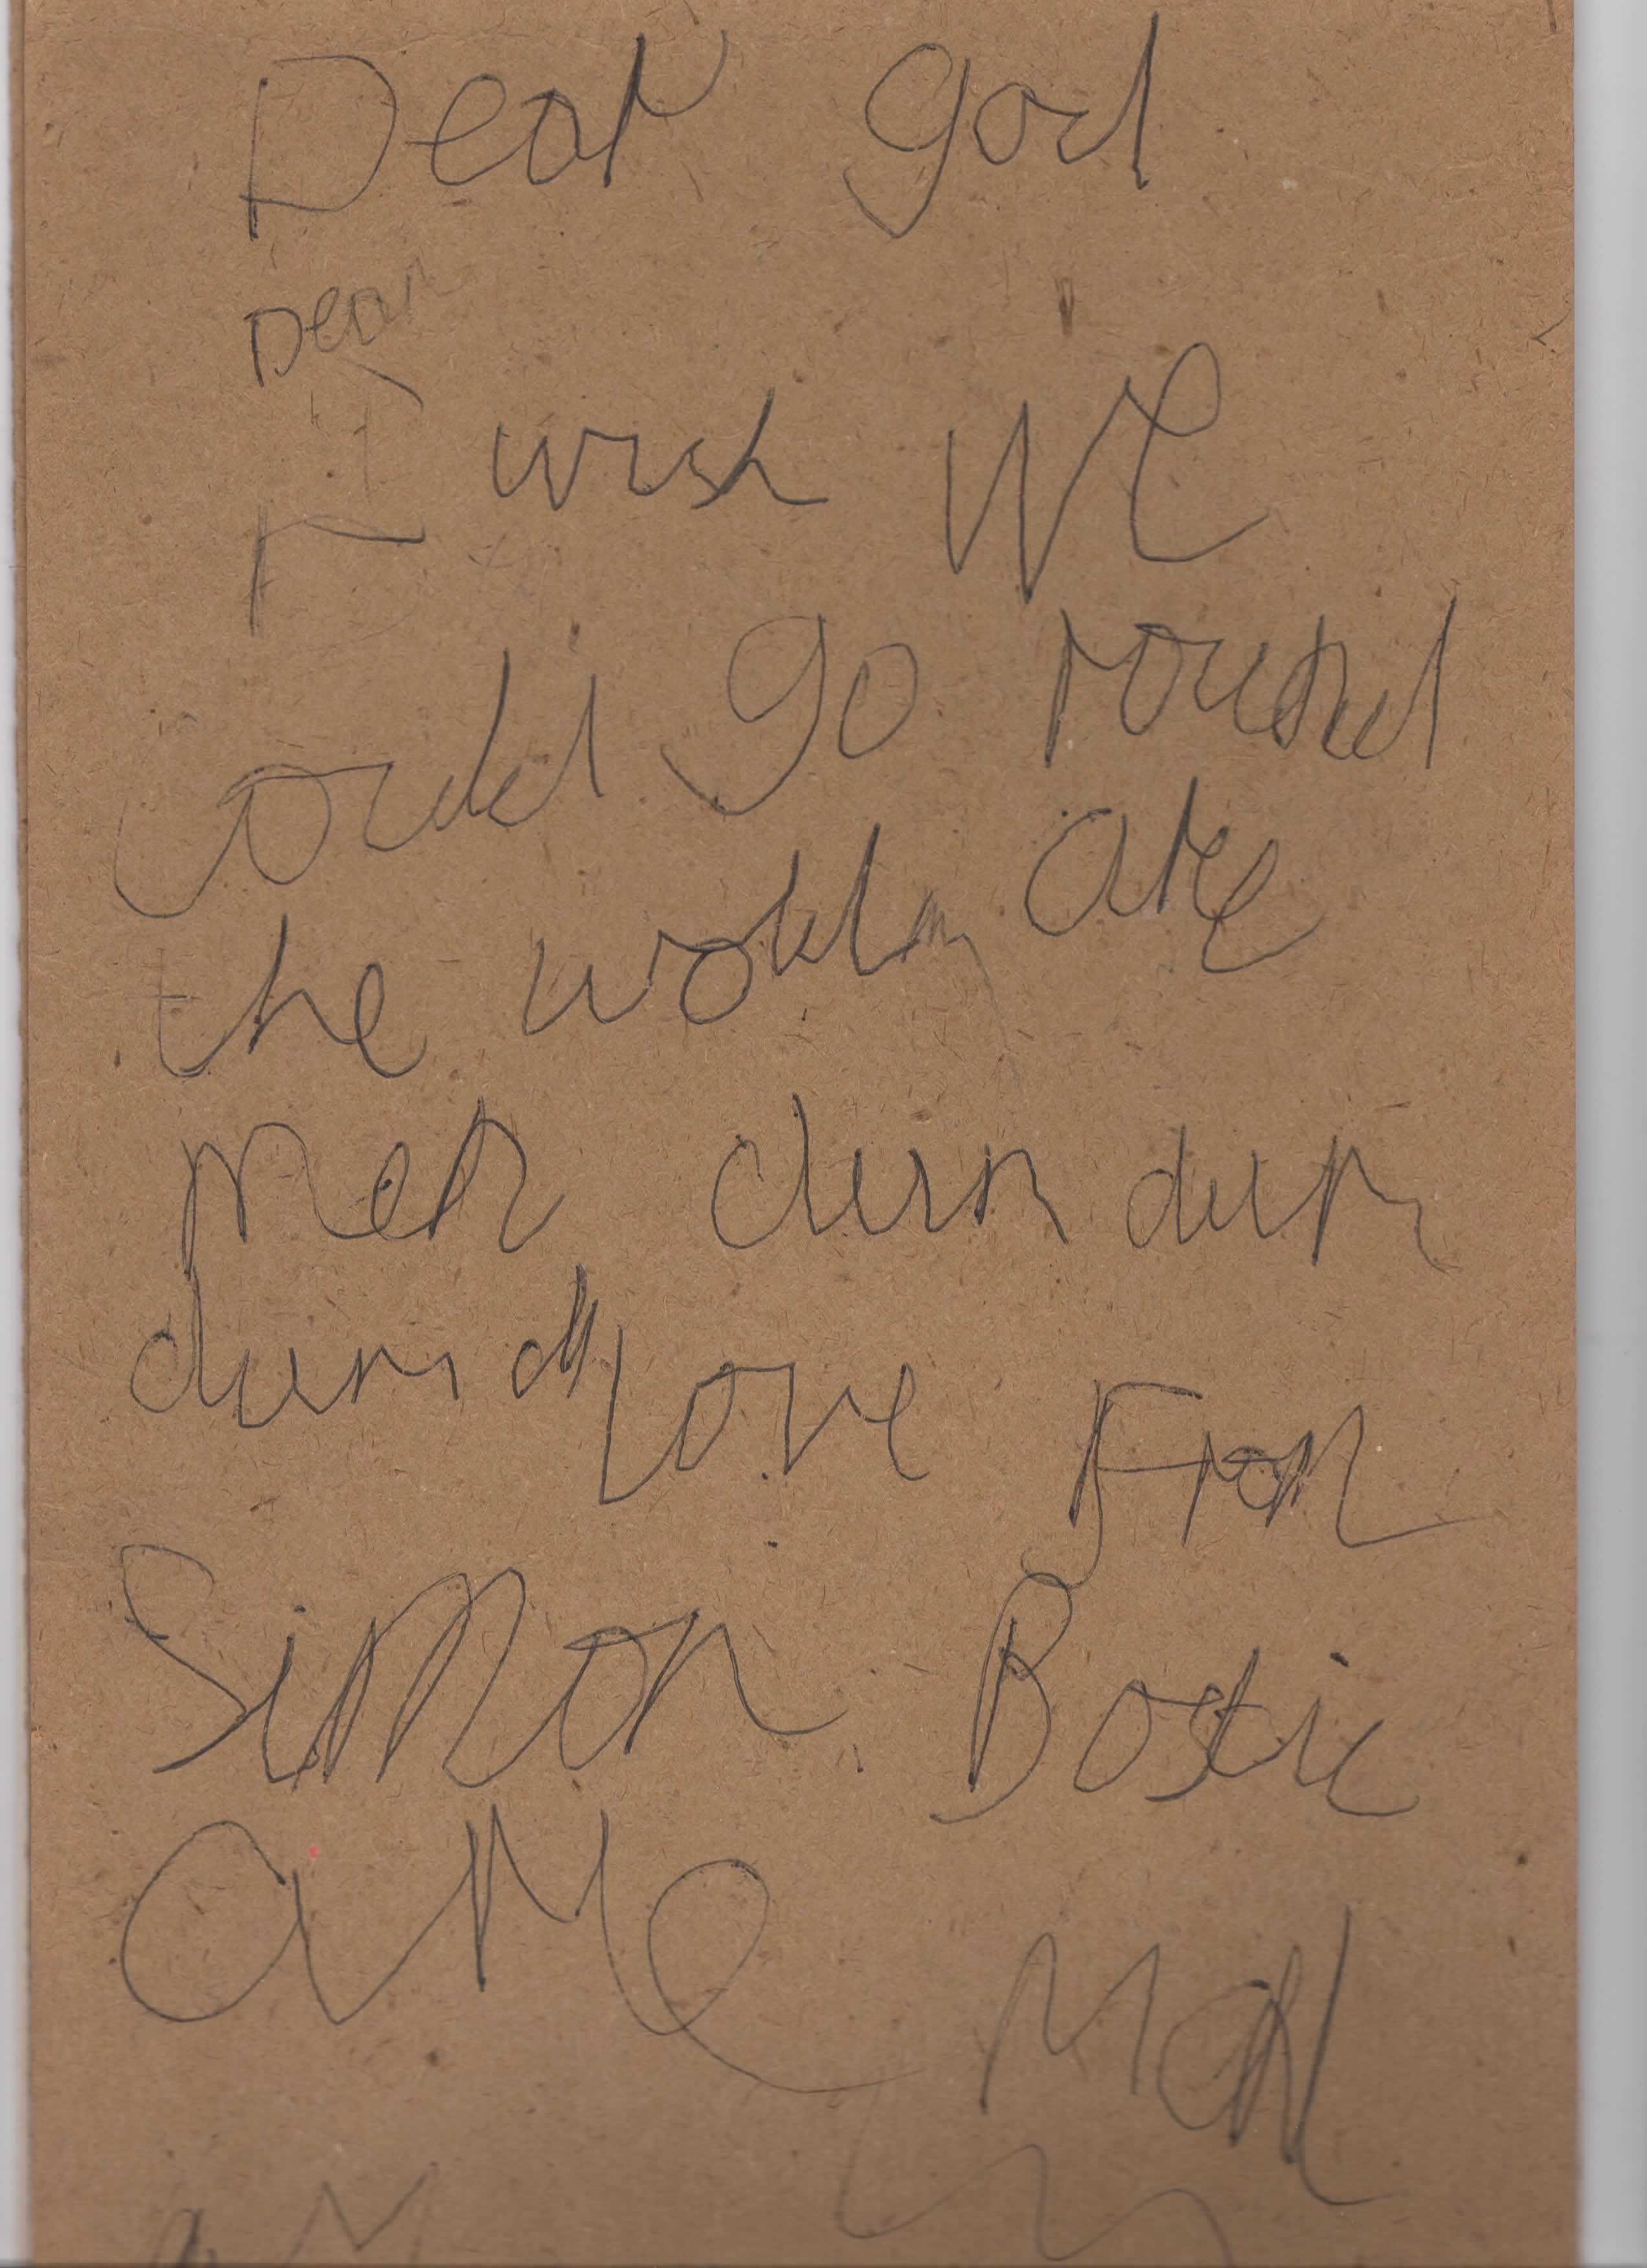 Dear god
Dear
I wish we
could go round
the wold, are
men dum dum
dum love From
Simon Bostic
are men